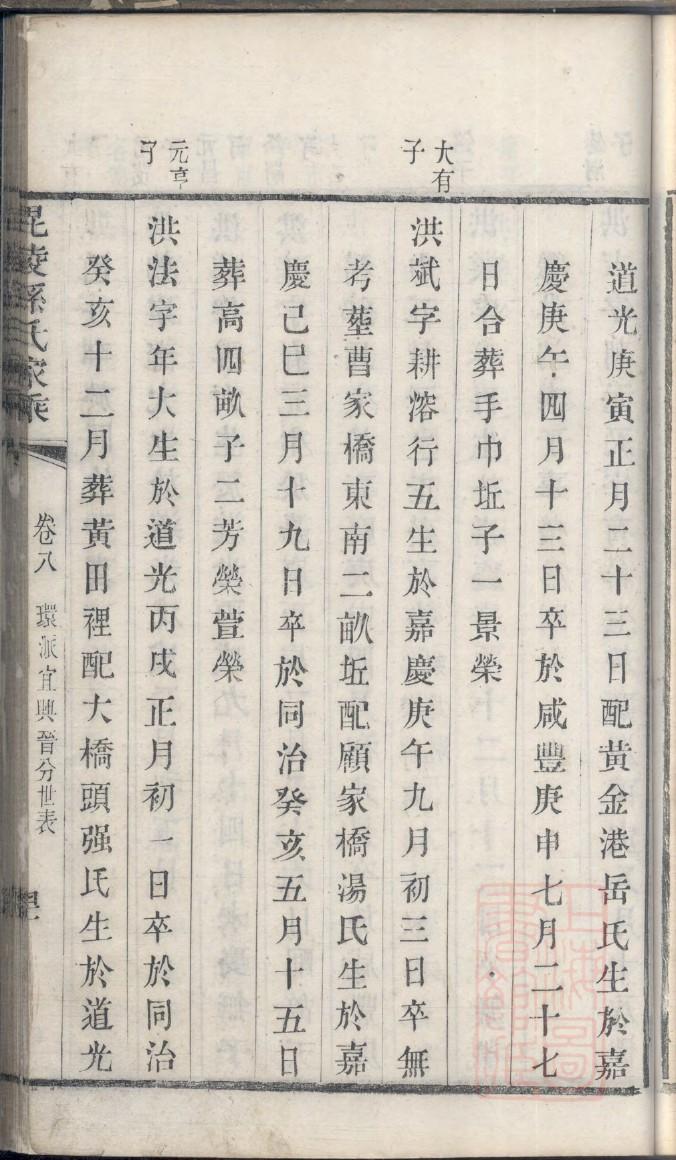 道光庚寅正月二十三日配黃金港岳氏生於嘉
慶庚午四月十三日卒於咸豐庚申七月二十七
日合葬手巾坵子一景榮
大有
子
洪斌字耕熔行五生於嘉慶庚午九月初三日卒無
考塟曹家橋東南二畝坵配顧家橋湯氏生於嘉
慶己巳三月十九日卒於同治癸亥五月十五日
葬高四畝子二芳榮萱榮
元亨
子
洪法字年大生於道光丙戌正月初一日卒於同治
癸亥十二月葬黃田裡配大橋頭强氏生於道光
毘陵孫氏家乘
卷八
環派宜興晉分世表